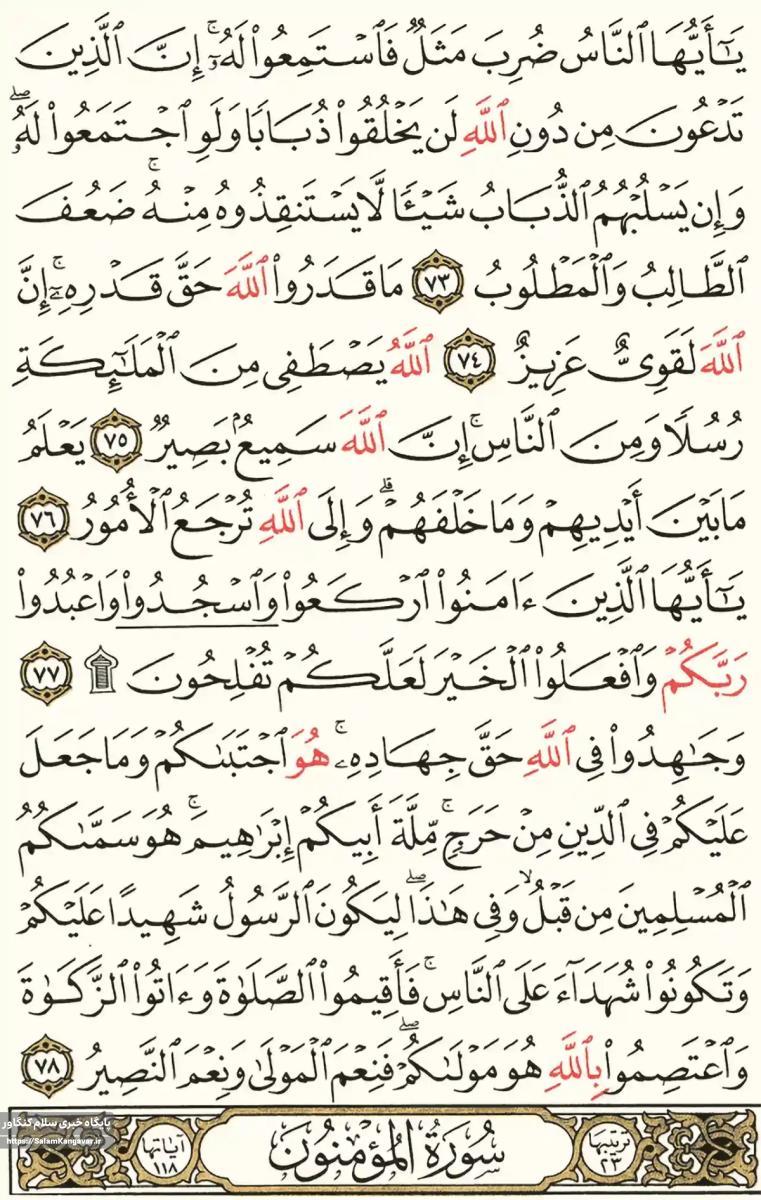 يَـٰٓأَيُّهَا ٱلنَّاسُ ضُرِبَ مَثَلٌ فَٱسْتَمِعُوا۟ لَهُۥٓ ۚ إِنَّ ٱلَّذِينَ
تَدْعُونَ مِن دُونِ ٱللَّهِ لَن يَخْلُقُوا۟ ذُبَابًا وَلَوِ ٱجْتَمَعُوا۟ لَهُۥ ۖ
وَإِن يَسْلُبْهُمُ ٱلذُّبَابُ شَيْـًٔا لَّا يَسْتَنقِذُوهُ مِنْهُ ۚ ضَعُفَ
ٱلطَّالِبُ وَٱلْمَطْلُوبُ ٧٣ مَا قَدَرُوا۟ ٱللَّهَ حَقَّ قَدْرِهِۦٓ ۚ إِنَّ
ٱللَّهَ لَقَوِىٌّ عَزِيزٌ ٧٤ ٱللَّهُ يَصْطَفِى مِنَ ٱلْمَلَـٰٓئِكَةِ
رُسُلًا وَمِنَ ٱلنَّاسِ ۚ إِنَّ ٱللَّهَ سَمِيعٌۢ بَصِيرٌ ٧٥ يَعْلَمُ
مَا بَيْنَ أَيْدِيهِمْ وَمَا خَلْفَهُمْ ۗ وَإِلَى ٱللَّهِ تُرْجَعُ ٱلْأُمُورُ ٧٦
يَـٰٓأَيُّهَا ٱلَّذِينَ ءَامَنُوا۟ ٱرْكَعُوا۟ وَٱسْجُدُوا۟ وَٱعْبُدُوا۟
رَبَّكُمْ وَٱفْعَلُوا۟ ٱلْخَيْرَ لَعَلَّكُمْ تُفْلِحُونَ ۩ ٧٧
وَجَـٰهِدُوا۟ فِى ٱللَّهِ حَقَّ جِهَادِهِۦ ۚ هُوَ ٱجْتَبَىٰكُمْ وَمَا جَعَلَ
عَلَيْكُمْ فِى ٱلدِّينِ مِنْ حَرَجٍ ۚ مِّلَّةَ أَبِيكُمْ إِبْرَٰهِيمَ ۚ هُوَ سَمَّىٰكُمُ
ٱلْمُسْلِمِينَ مِن قَبْلُ ۙ وَفِى هَـٰذَا ۖ لِيَكُونَ ٱلرَّسُولُ شَهِيدًا عَلَيْكُمْ
وَتَكُونُوا۟ شُهَدَآءَ عَلَى ٱلنَّاسِ ۚ فَأَقِيمُوا۟ ٱلصَّلَوٰةَ وَءَاتُوا۟ ٱلزَّكَوٰةَ
وَٱعْتَصِمُوا۟ بِٱللَّهِ هُوَ مَوْلَىٰكُمْ ۖ فَنِعْمَ ٱلْمَوْلَىٰ وَنِعْمَ ٱلنَّصِيرُ ٧٨
ترتيبها ٢٣
سُورَةُ المُؤْمِنُونَ
آياتها ١١٨
پایگاه خبری سلام کنگاور
https://SalamKangavar.ir